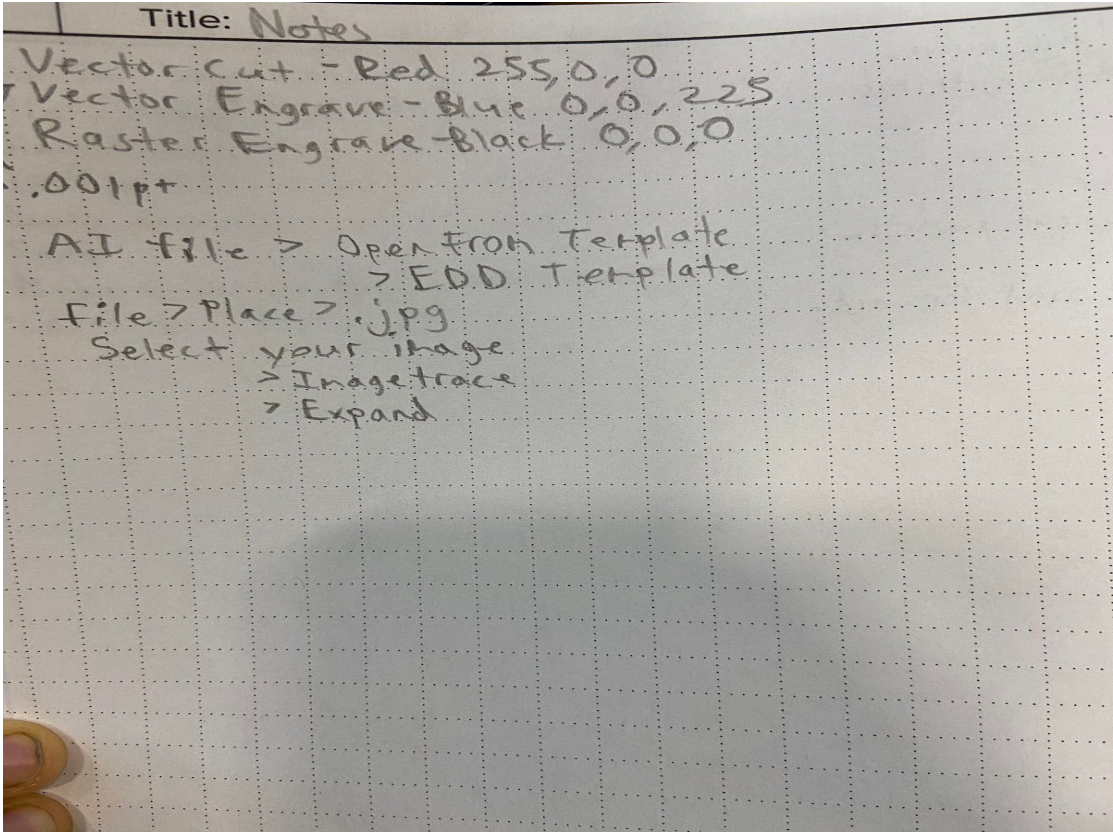 Title: Notes
Vector Cut - Red 255,0,0
Vector Engrave - Blue 0,0,225
Raster Engrave - Black 0,0,0
.001pt
AI file > Open From Template
> EDD Template
file > Place > .jpg
Select your image
> Imagetrace
> Expand